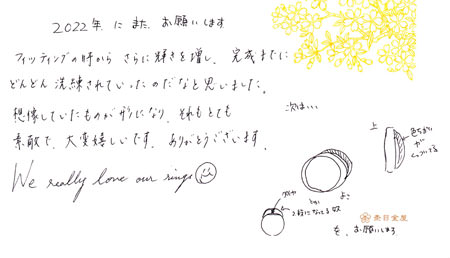 2022年 に また お願いします
フィッティングの時から さらに輝きを増し、完成までに
どんどん洗練されていったのだなと思いました。
想像していたものが形になり、それもとても
素敵で、大変嬉しいです。ありがとうございます。
We really love our rings
次は…
上
色ちがい
が
くっついてる
よこ
とか
2段になってる奴
杢目金屋
を、お願いします